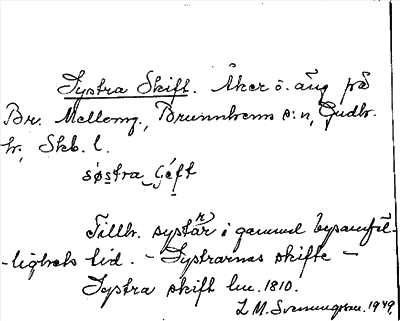 Systra Skift. Åker o. äng på
Br. Mellomg., Brunnhems s:n, Gudh.
hr, Skb. l.
søstra ʃéft
Tillh. systrar i gammal bysamfäl-
-lighets tid. - Systrarnas skifte -
Systra skift lm. 1810.
L. M. Svenungsson. 1949.